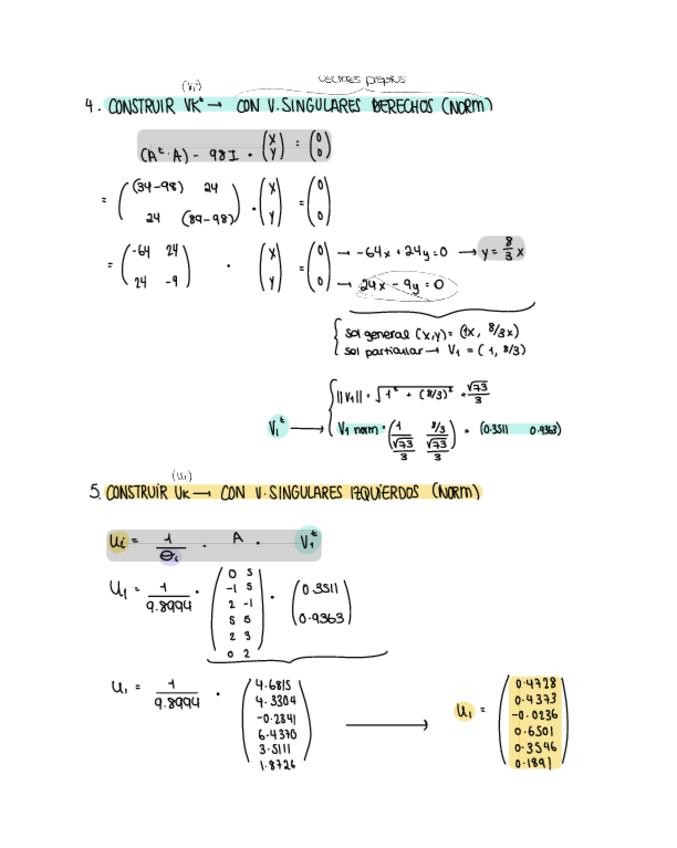 (Vi) vectores propios
4. CONSTRUIR VKᵗ → CON V. SINGULARES DERECHOS (NORM)
(Aᵗ·A) - 98I · (x y) = (0 0)
= ((34-98) 24 24 (89-98)) · (x y) = (0 0)
= (-64 24 24 -9) · (x y) = (0 0) → -64x + 24y = 0 → y = 8/3 x
→ 24x - 9y = 0
sol general (x,y) = (1x, 8/3x)
sol particular → V1 = (1, 8/3)
||V1|| = √(1² + (8/3)²) = √73/3
V1ᵗ → V1 norm = (1/(√73/3) (8/3)/(√73/3)) = (0.3511 0.9363)
(Ui)
5. CONSTRUIR UK → CON V. SINGULARES IZQUIERDOS (NORM)
Ui = 1/θi · A · V1ᵗ
U1 = 1/9.8994 · (0 5 -1 5 2 -1 5 5 2 3 0 2) · (0.3511 0.9363)
U1 = 1/9.8994 · (4.6815 4.3304 -0.2341 6.4370 3.5111 1.8726) → U1 = (0.4728 0.4373 -0.0236 0.6501 0.3546 0.1891)